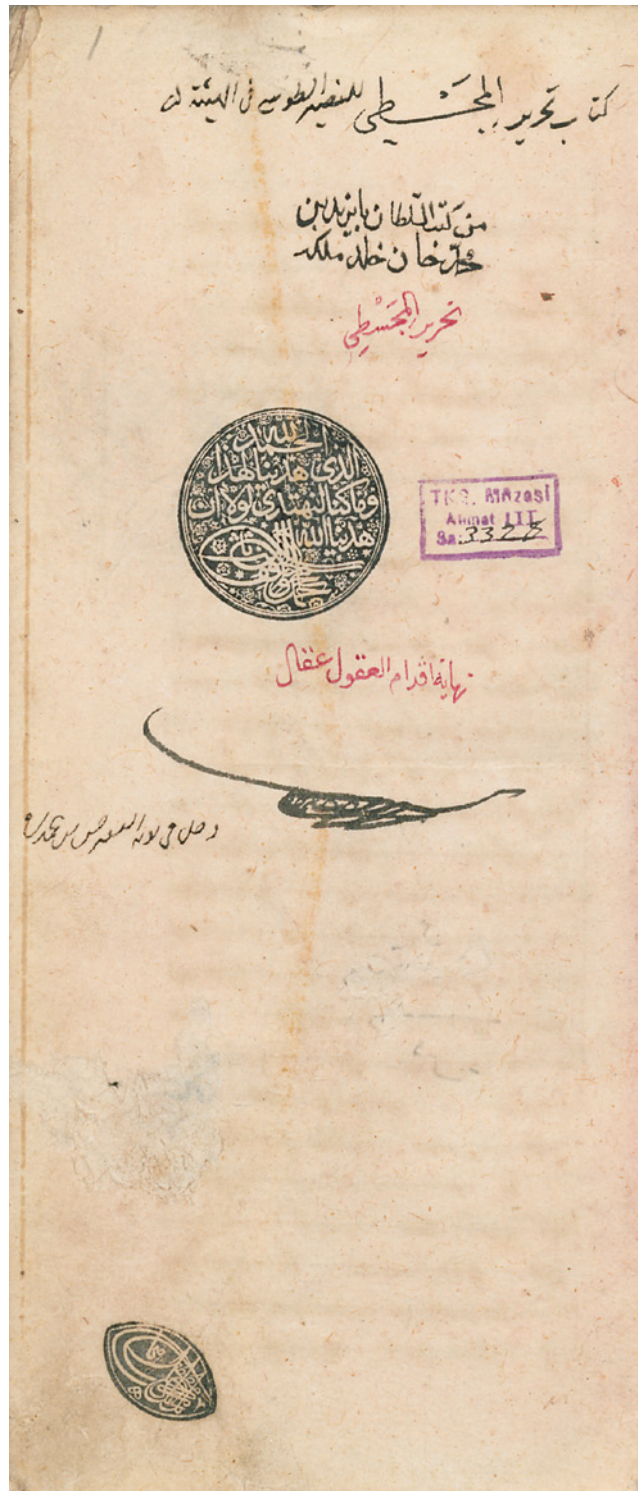 1
كتاب تحرير المجسطي للنصير الطوسي في الهيئة
من كتب السلطان بايزيد بن
محمد خان خلد ملكه
تحرير المجسطي
الحمد لله
الذي هدينا لهذا
وما كنا لنهتدي لولا ان
هدينا الله
TKS. Müzesi
Ahmet III
Sa: 3328
نهاية اقدام العقول عقال